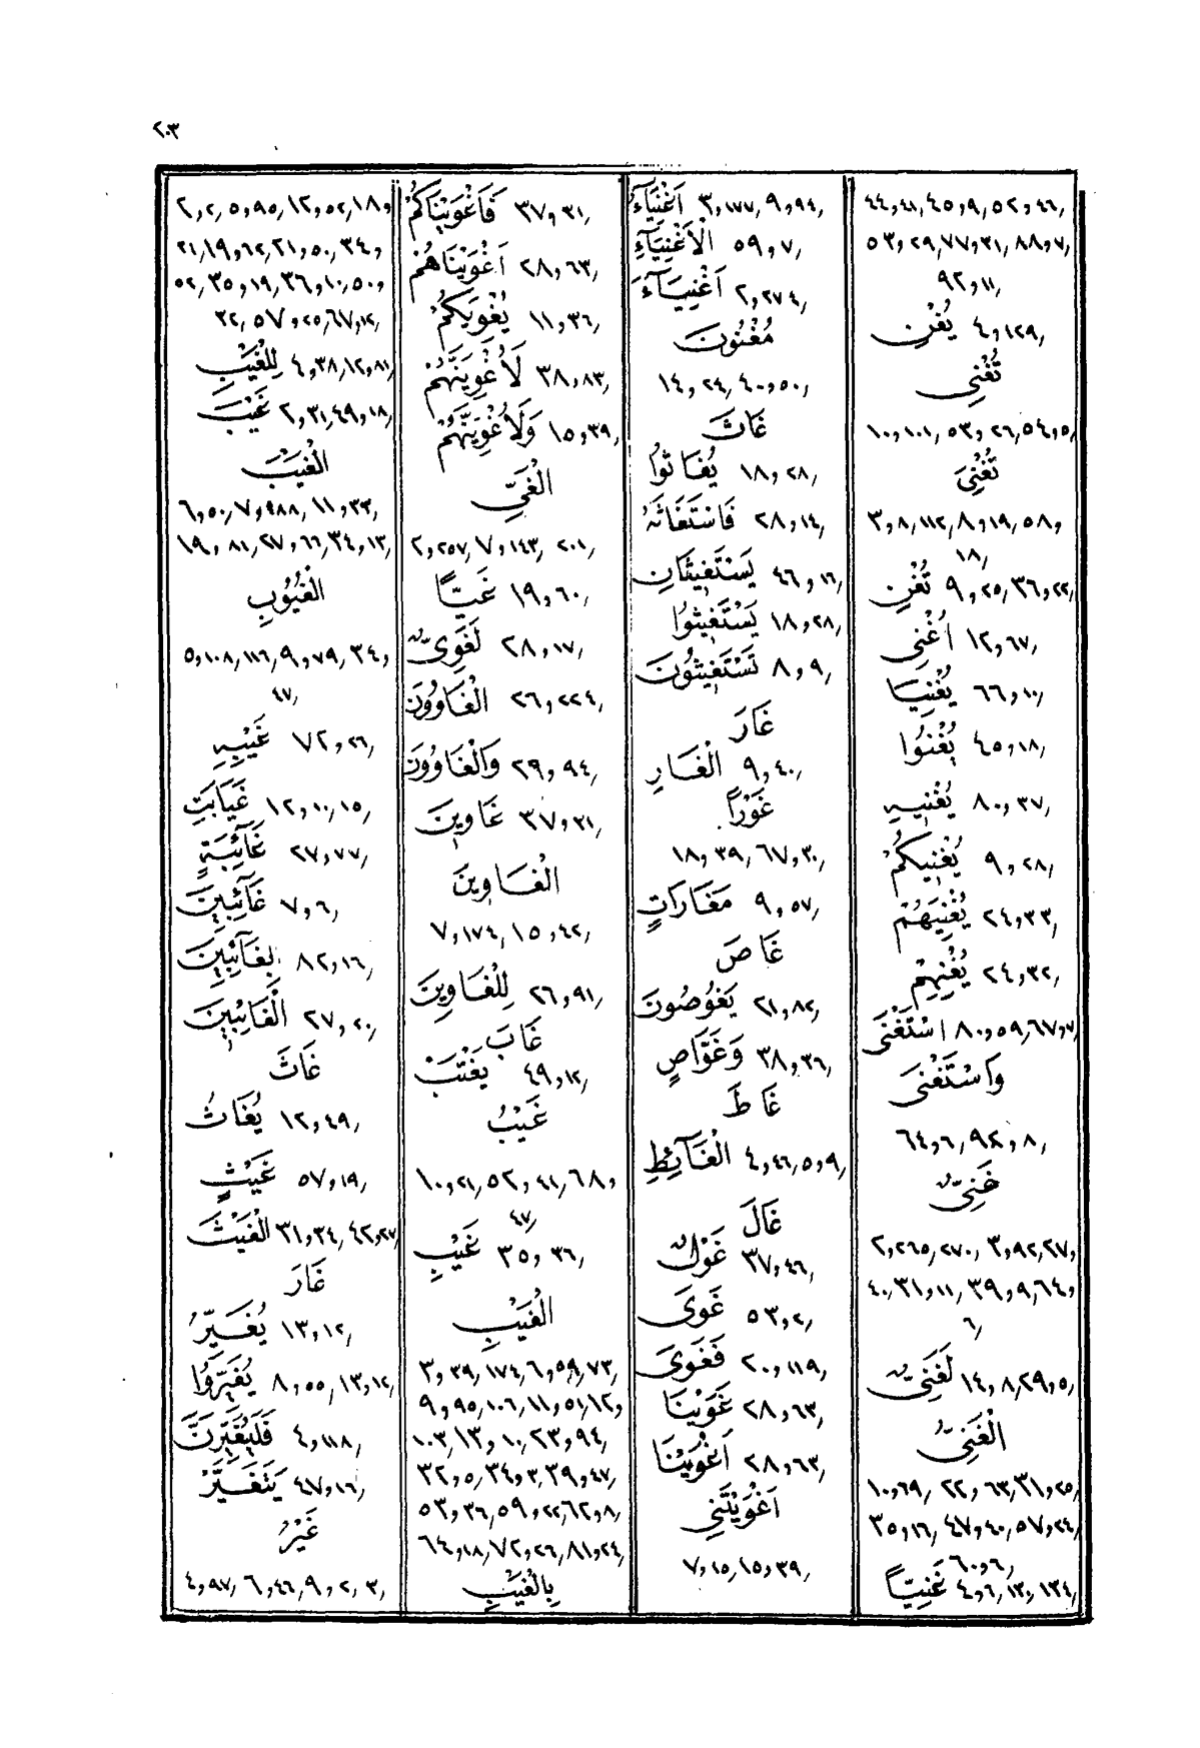 ٢٠٣
٤٤,٤١,٤٥,٩,٥٢,٤٦,
٥٣,٢٩,٧٧,٣١,٨٨,٧,
٩٢,١١,
يُغْنِ ٤,١٢٩,
تُغْنِى
١٠,١٠١,٥٣,٢٦,٥٤,٥,
تُغْنِىَ
٣,٨,١١٢,٨,١٩,٥٨,
١٨,
تُغْنِ ٩,٢٥,٣٦,٢٢,
اُغْنِى ١٢,٦٧,
يُغْنِيَا ٦٦,١٠,
يُغْنُوا ٤٥,١٨,
يُغْنِيهِ ٨٠,٣٧,
يُغْنِيكُمْ ٩,٢٨,
يُغْنِيَهُمْ ٢٤,٣٣,
يُغْنِهِمْ ٢٤,٣٢,
اسْتَغْنَى ٨٠,٥٩,٦٧,٧,
وَاسْتَغْنَى
٦٤,٦,٩٢,٨,
غَنِىٌّ
٢,٢٦٥,٢٧٠,٣,٩٢,٢٧,
٤٠,٣١,١١,٣٩,٩,٦٤,
٦,
لَغَنِىٌّ ١٤,٨,٢٩,٥,
الْغَنِىُّ
١٠,٦٩,٢٢,٦٣,٣١,٢٥,
٣٥,١٦,٤٧,٤٠,٥٧,٢٤,
٦٠,٦,
غَنِيًّا ٤,٦,١٣,١٣٤,
اَغْنِيَآءُ ٣,١٧٧,٩,٩٤,
الْاَغْنِيَآءِ ٥٩,٧,
اَغْنِيَآءَ ٢,٢٧٤,
مُغْنُونَ
١٤,٢٤,٤٠,٥٠,
غَاثَ
يُغَاثُوا ١٨,٢٨,
فَاسْتَغَاثَهُ ٢٨,١٤,
يَسْتَغِيثَانِ ٤٦,١٦,
يَسْتَغِيثُوا ١٨,٢٨,
تَسْتَغِيثُونَ ٨,٩,
غَارَ
الْغَارِ ٩,٤٠,
غَوْرًا
١٨,٣٩,٦٧,٣٠,
مَغَارَاتٍ ٩,٥٧,
غَاصَ
يَغُوصُونَ ٢١,٨٢,
وَغَوَّاصٍ ٣٨,٣٦,
غَاطَ
الْغَآئِطِ ٤,٤٦,٥,٩,
غَالَ
غَوْلٌ ٣٧,٤٦,
غَوَى ٥٣,٢,
فَغَوَى ٢٠,١١٩,
غَوَيْنَا ٢٨,٦٣,
اَغْوَيْنَا ٢٨,٦٣,
اَغْوَيْتَنِى
٧,١٥,١٥,٣٩,
فَاَغْوَيْنَاكُمْ ٣٧,٣١,
اَغْوَيْنَاهُمْ ٢٨,٦٣,
يُغْوِيَكُمْ ١١,٣٦,
لَاُغْوِيَنَّهُمْ ٣٨,٨٣,
وَلَاُغْوِيَنَّهُمْ ١٥,٣٩,
الْغَىِّ
٢,٢٥٧,٧,١٤٣,٢٠١,
غَيًّا ١٩,٦٠,
لَغَوِىٌّ ٢٨,١٧,
الْغَاوُونَ ٢٦,٢٢٤,
وَالْغَاوُونَ ٢٩,٩٤,
غَاوِينَ ٣٧,٣١,
الْغَاوِينَ
٧,١٧٤,١٥,٤٢,
لِلْغَاوِينَ ٢٦,٩١,
غَابَ
يَغْتَبْ ٤٩,١٢,
غَيْبُ
١٠,٢١,٥٢,٤١,٦٨,
٤٧,
غَيْبِ ٣٥,٣٦,
الْغَيْبِ
٣,٣٩,١٧٤,٦,٥٩,٧٣,
٩,٩٥,١٠٦,١١,٥١,١٢,
١٠٣,١٣,١٠,٢٣,٩٤,
٣٢,٥,٣٤,٣,٣٩,٤٧,
٥٣,٣٦,٥٩,٢٢,٦٢,٨,
٦٤,١٨,٧٢,٢٦,٨١,٢٤,
بِالْغَيْبِ
٢,٢,٥,٩٥,١٢,٥٢,١٨,
٢١,١٩,٦٢,٢١,٥٠,٣٤,
٥٢,٣٥,١٩,٣٦,١٠,٥٠,
٣٢,٥٧,٢٥,٦٧,١٢,
لِلْغَيْبِ ٤,٣٨,١٢,٨١,
غَيْبَ ٢,٣١,٤٩,١٨,
الْغَيْبَ
٦,٥٠,٧,٤٨٨,١١,٣٣,
١٩,٨١,٢٧,٦٦,٣٤,١٣,
الْغُيُوبِ
٥,١٠٨,١١٦,٩,٧٩,٣٤,
٤٧,
غَيْبِهِ ٧٢,٢٦,
غَيَابَتِ ١٢,١٠,١٥,
غَآئِبَةٍ ٢٧,٧٧,
غَآئِبِينَ ٧,٦,
بِغَآئِبِينَ ٨٢,١٦,
الْغَائِبِينَ ٢٧,٢٠,
غَاثَ
يُغَاثُ ١٢,٤٩,
غَيْثٍ ٥٧,١٩,
الْغَيْثَ ٣١,٣٤,٤٢,٢٧,
غَارَ
يُغَيِّرُ ١٣,١٢,
يُغَيِّرُوا ٨,٥٥,١٣,١٢,
فَلَيُغَيِّرُنَّ ٤,١١٨,
يَتَغَيَّرْ ٤٧,١٦,
غَيْرُ
٤,٩٧,٦,٤٦,٩,٢,٣,